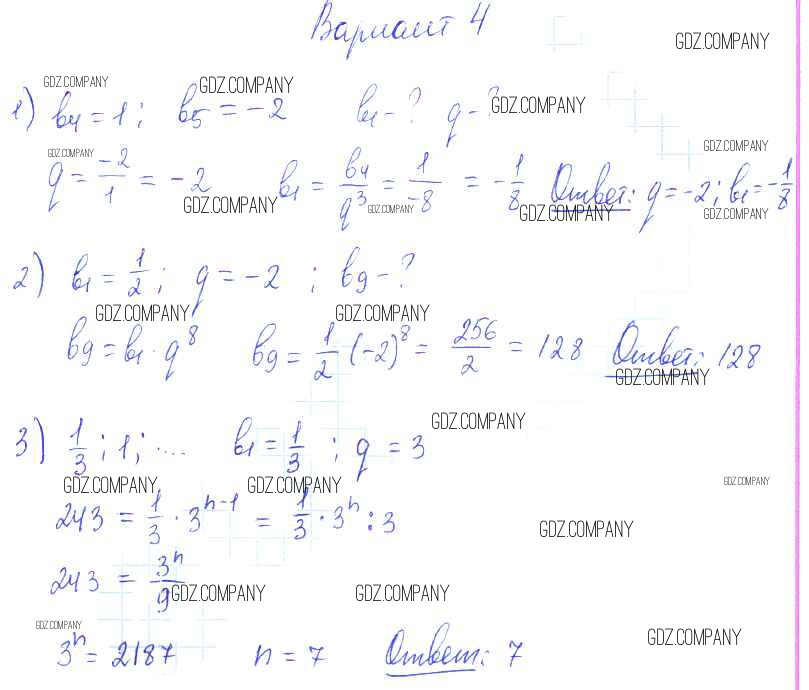 Вариант 4
GDZ.COMPANY
GDZ.COMPANY GDZ.COMPANY
1) b₄ = 1; b₅ = -2 b₁ - ? q - ? GDZ.COMPANY
GDZ.COMPANY GDZ.COMPANY
q = -2/1 = -2 b₁ = b₄/q³ = 1/-8 = -1/8 Ответ: q = -2; b₁ = -1/8
GDZ.COMPANY GDZ.COMPANY GDZ.COMPANY GDZ.COMPANY
2) b₁ = 1/2; q = -2 ; b₉ - ?
GDZ.COMPANY GDZ.COMPANY
b₉ = b₁ · q⁸ b₉ = 1/2 (-2)⁸ = 256/2 = 128 Ответ: 128
GDZ.COMPANY
GDZ.COMPANY
3) 1/3; 1; ... b₁ = 1/3 ; q = 3
GDZ.COMPANY GDZ.COMPANY GDZ.COMPANY
243 = 1/3 · 3ⁿ⁻¹ = 1/3 · 3ⁿ : 3
GDZ.COMPANY
243 = 3ⁿ/9
GDZ.COMPANY GDZ.COMPANY
GDZ.COMPANY GDZ.COMPANY
3ⁿ = 2187 n = 7 Ответ: 7